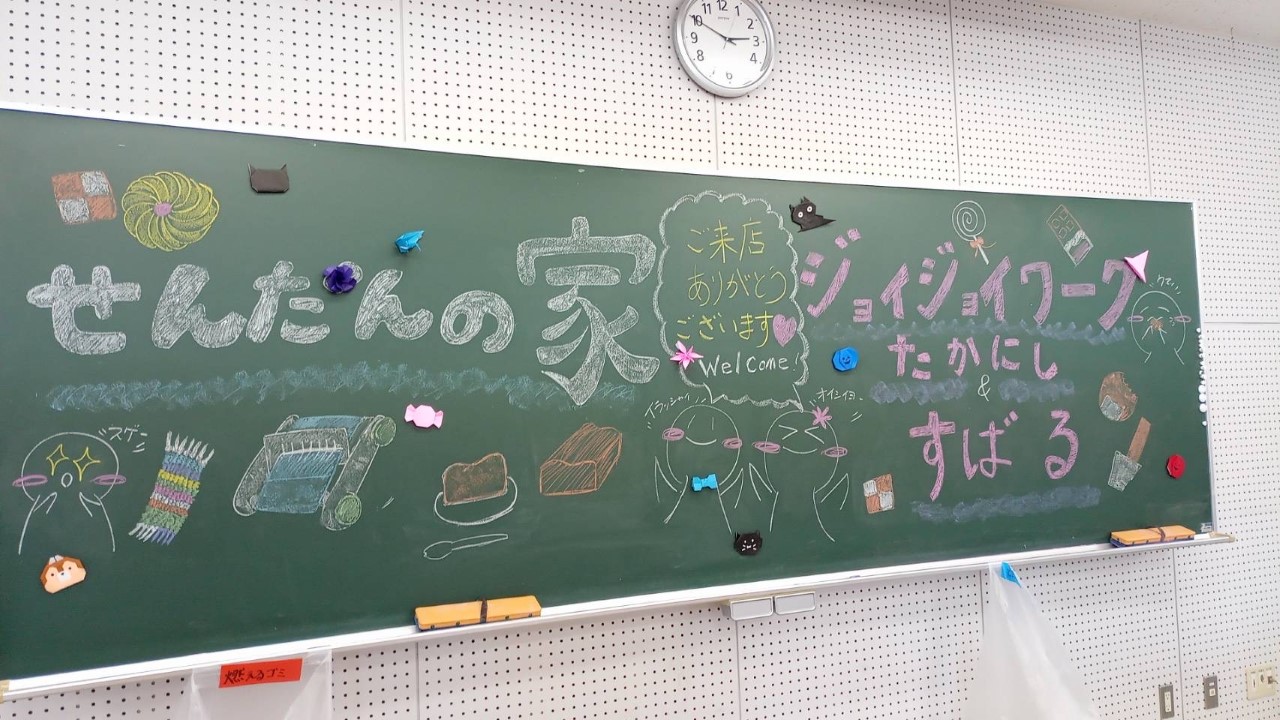 せんたんの家
ご来店
ありがとう
ございます
Welcome!
ジョイジョイワーク
たかにし
&
すばる
スゲー
イラッシャイ
オイシイヨー
燃えるゴミ
11 12 1
10 2
9 3
8 4